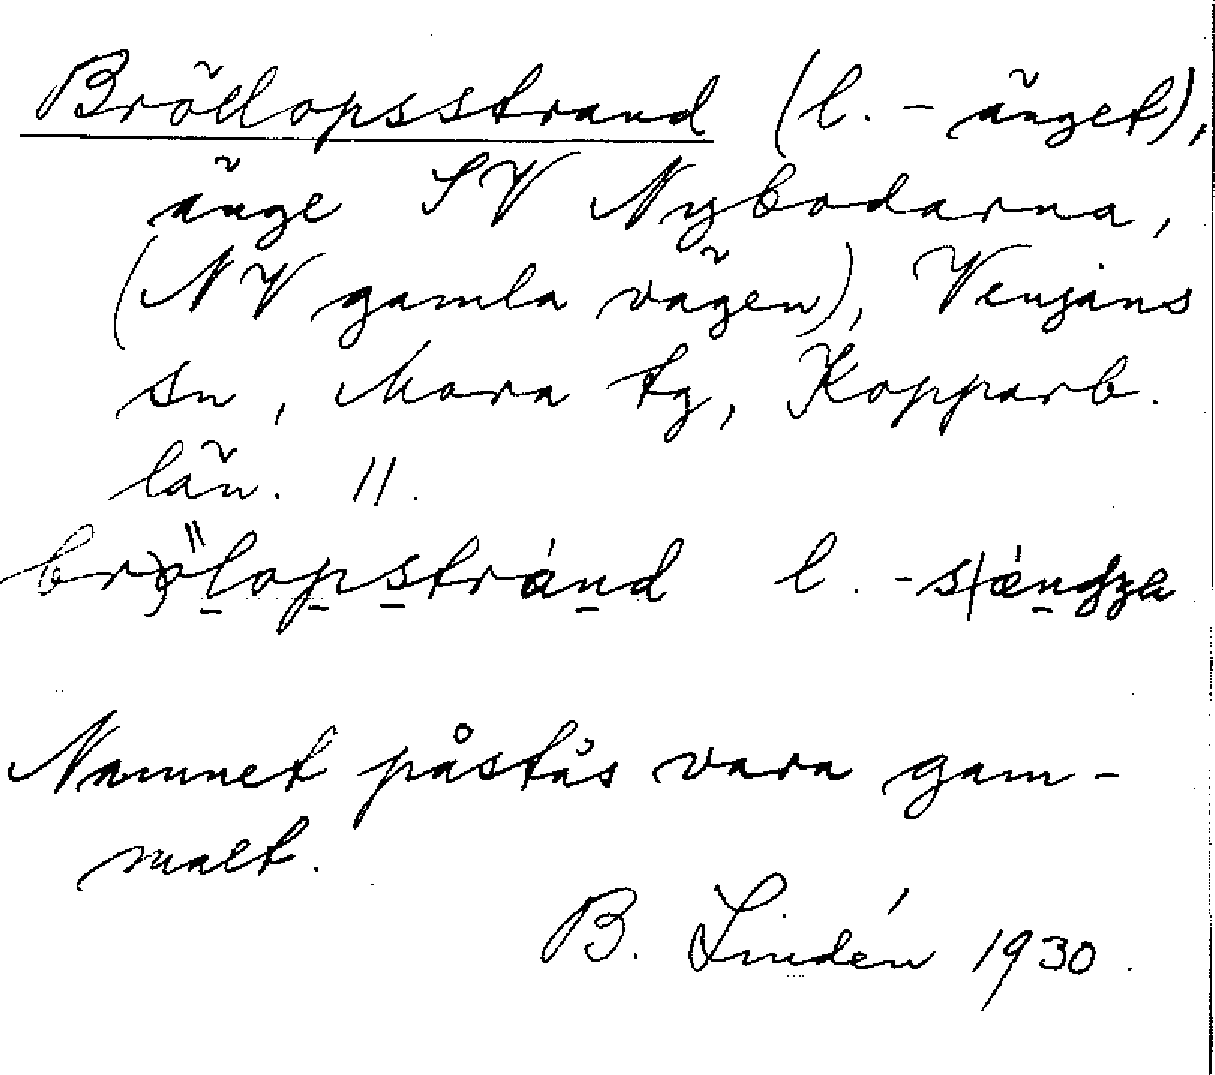 Bröllopsstrand (l. - änget),
änge SV Nybodarna,
(NV gamla vägen), Venjans
sn, Mora tg, Kopparb.
län. 11.
brö̋lopstránd l. -s
Namnet påstås vara gam-
malt.
B. Lindén 1930.